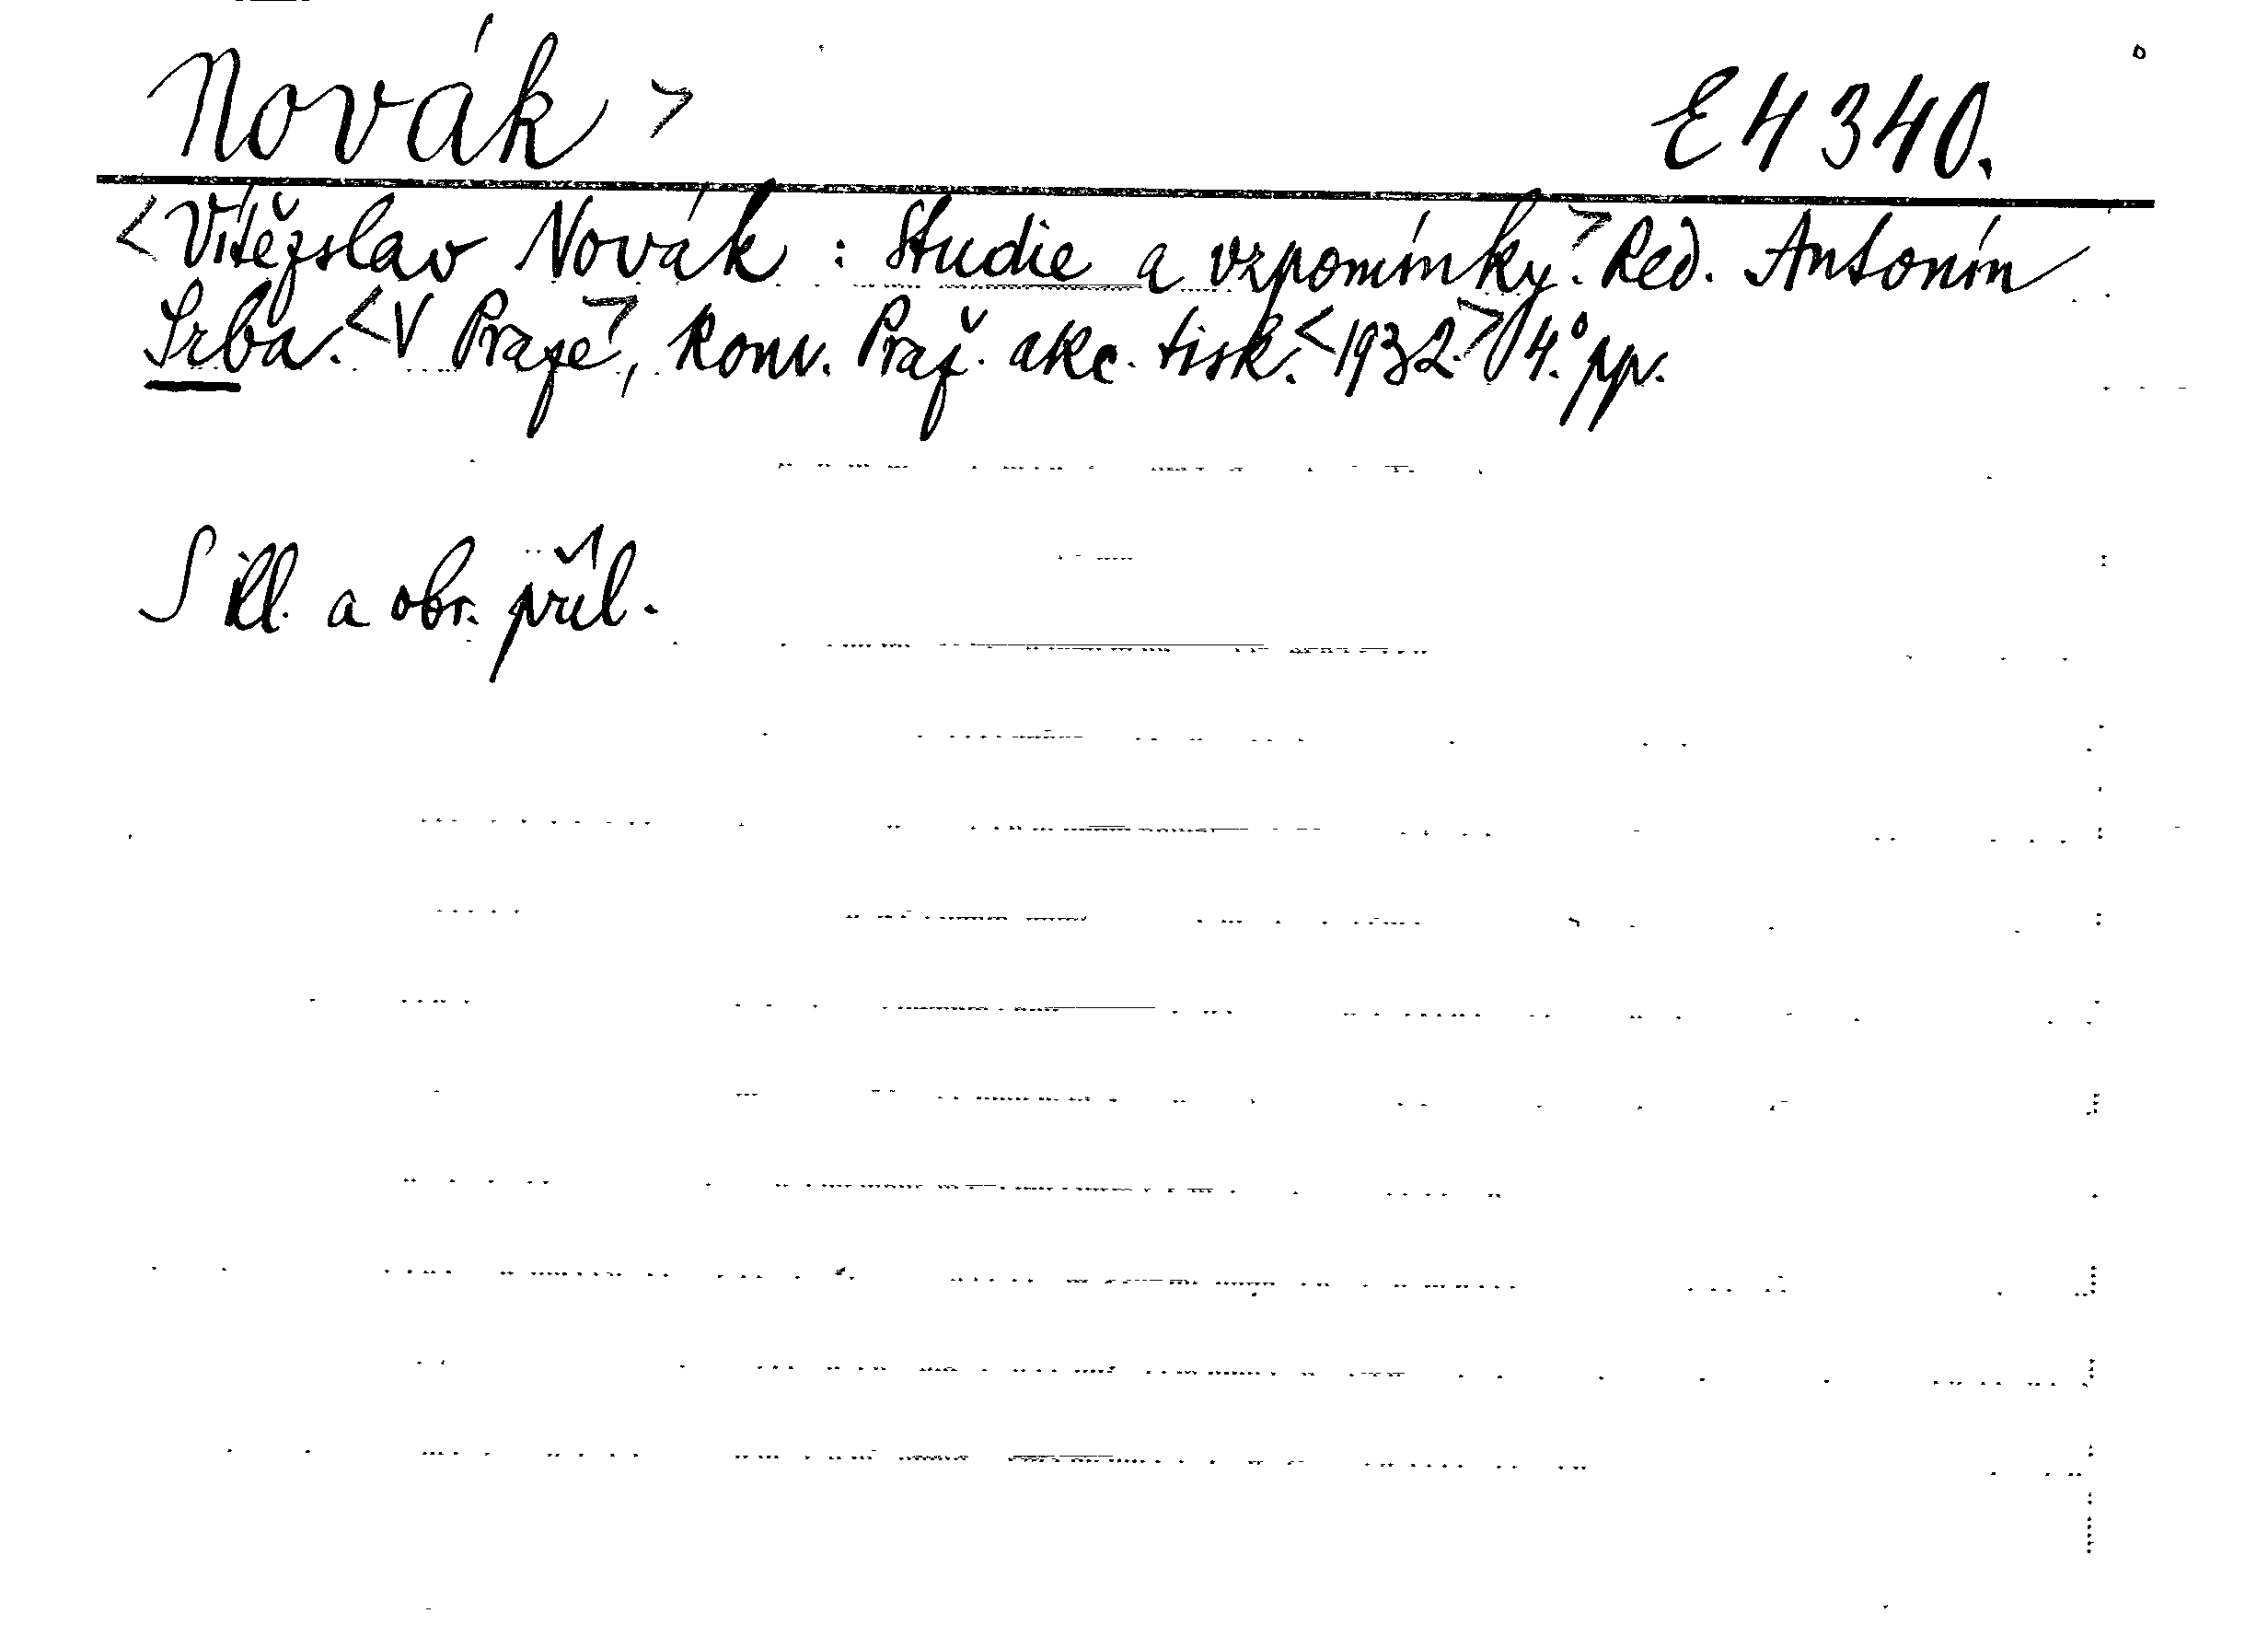 Novák > E 4340.
<Vítězslav Novák : Studie a vzpomínky.> Red. Antonín
Srba. <V Praze>, Konv. Praž. akc. tisk. <1932.> 4.° pp.
S ill. a obr. příl.